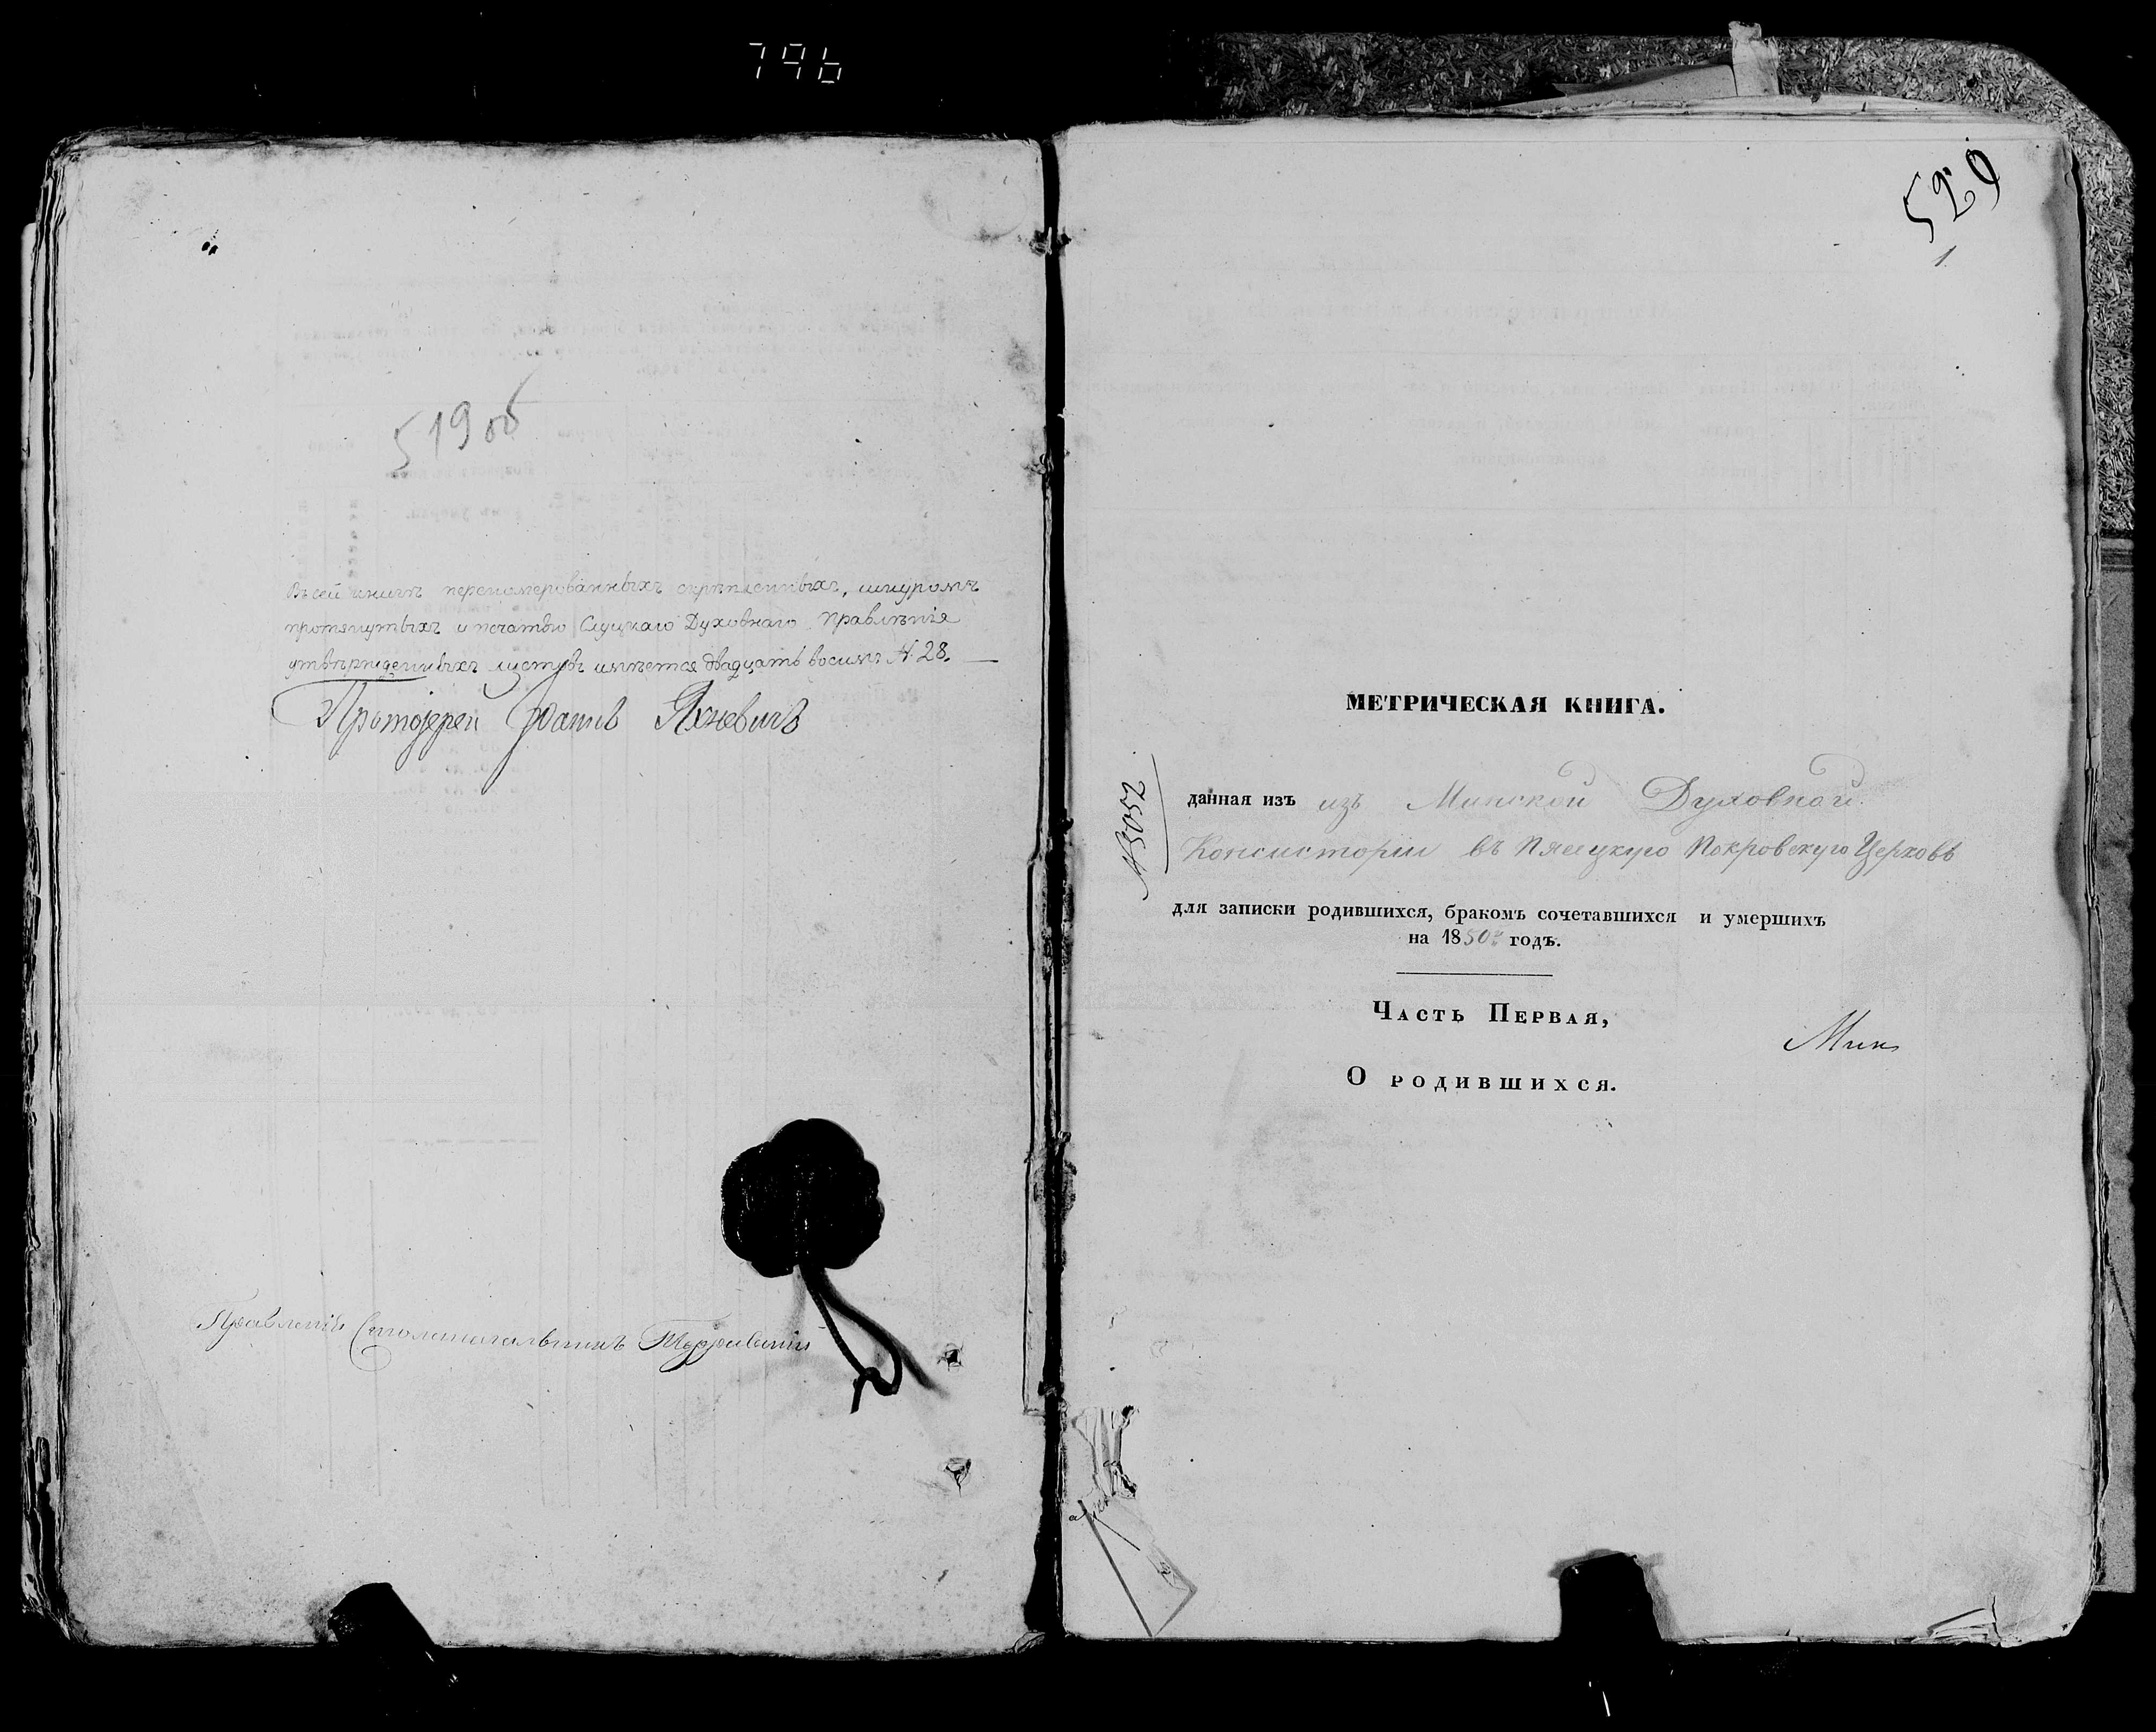 796
519 об
Въ сей книгѣ переномерованныхъ скрѣпленныхъ, шнуромъ
протянутыхъ и печатью Слуцкаго Духовнаго Правленія
утвержденныхъ листовъ имѣется двадцать восимъ № 28.
Протоіерей Яхневичъ
Правленія Столоначальникъ
529
1
МЕТРИЧЕСКАЯ КНИГА.
№ 3052
данная изъ изъ Минской Духовной
Консисторіи въ Пясецкую Покровскую Церковь
для записки родившихся, бракомъ сочетавшихся и умершихъ
на 1850й годъ.
Часть Первая,
Мин
О родившихся.